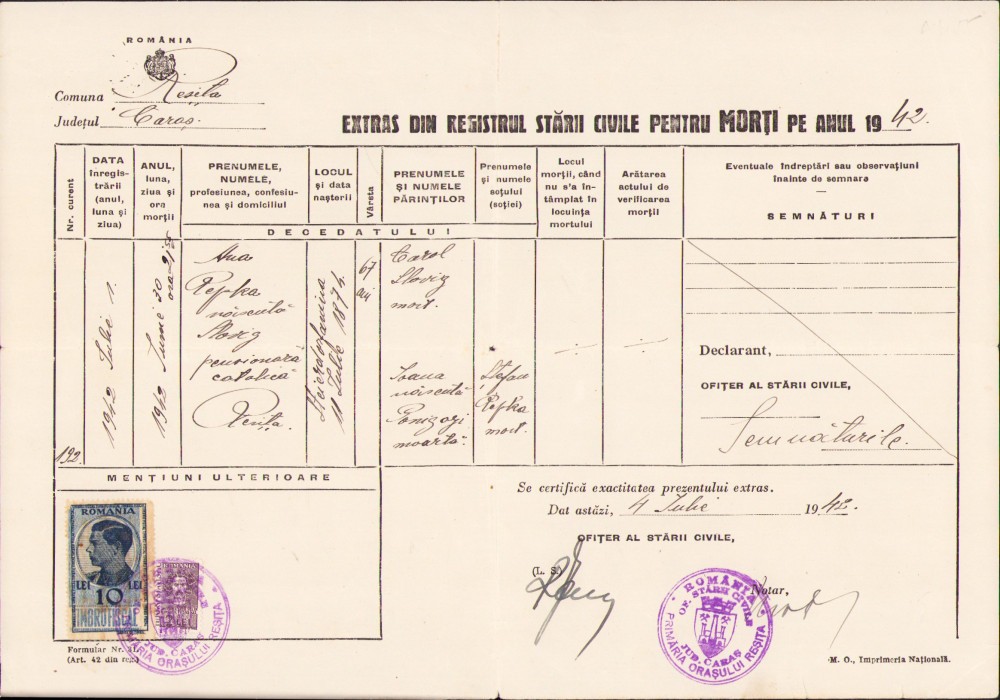 ROMÂNIA
Comuna Reșița
Județul Caraș.
EXTRAS DIN REGISTRUL STĂRII CIVILE PENTRU MORȚI PE ANUL 1942.
Nr. curent
DATA
înregis-
trării
(anul,
luna și
ziua)
ANUL,
luna,
ziua și
ora
morții
PRENUMELE,
NUMELE,
profesiunea, confesiu-
nea și domiciliul
LOCUL
și data
nașterii
Vârsta
PRENUMELE
ȘI NUMELE
PĂRINȚILOR
Prenumele
și numele
soțului
(soției)
DECEDATULUI
Locul
morții, când
nu s'a în-
tâmplat în
locuința
mortului
Arătarea
actului de
verificarea
morții
Eventuale îndreptări sau observațiuni
înainte de semnare
SEMNĂTURI
192.
1942 Iulie 1.
1942 Iunie 30
ora
Ana
Repka
născută
Slovig
pensionară
catolică
Reșița.
Steierdorfanina
11 Iulie 1874.
67
ani
Carol
Slovig
mort.
Ioana
născută
moartă.
Ștefan
Repka
mort.
Declarant,
OFIȚER AL STĂRII CIVILE,
Semnăturile.
MENȚIUNI ULTERIOARE
Se certifică exactitatea prezentului extras.
Dat astăzi, 4 Iulie 1942.
OFIȚER AL STĂRII CIVILE,
(L. S.)
Notar,
ROMÂNIA
LEI 10 LEI
TIMBRU FISCAL
ROMANIA
2 LEI
JUD. CARAȘ
PRIMĂRIA ORAȘULUI REȘIȚA
ROMÂNIA
OF. STĂRII CIVILE
JUD. CARAȘ
PRIMĂRIA ORAȘULUI REȘIȚA
Formular Nr. 31.
(Art. 42 din reg.)
M. O., Imprimeria Națională.